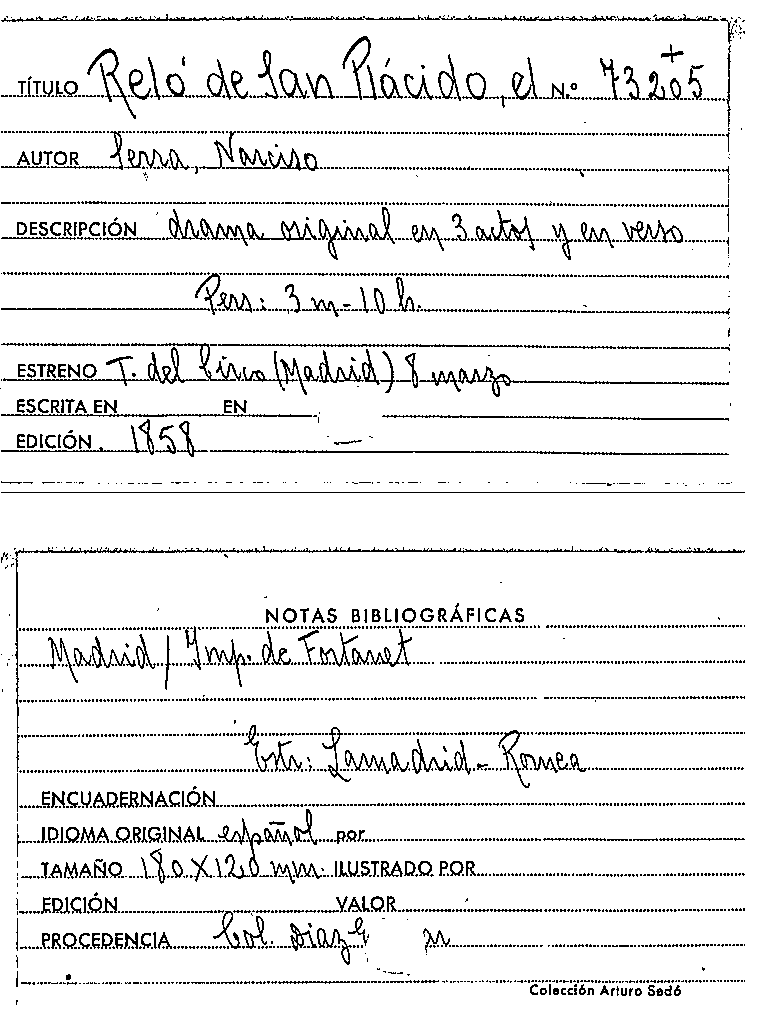 +
TÍTULO Reló de San Plácido, el N.º 73205
AUTOR Serra, Narciso
DESCRIPCIÓN drama original en 3 actos y en verso
Pers: 3 m - 10 h.
ESTRENO T. del Circo (Madrid) 8 marzo
ESCRITA EN EN
EDICIÓN. 1858 —
NOTAS BIBLIOGRÁFICAS
Madrid / Imp. de Fortanet
Estr: Lamadrid - Romea
ENCUADERNACIÓN
IDIOMA ORIGINAL español por
TAMAÑO 180 X 120 mm. ILUSTRADO POR
EDICIÓN VALOR
PROCEDENCIA Col. Diaz
Colección Arturo Sedó